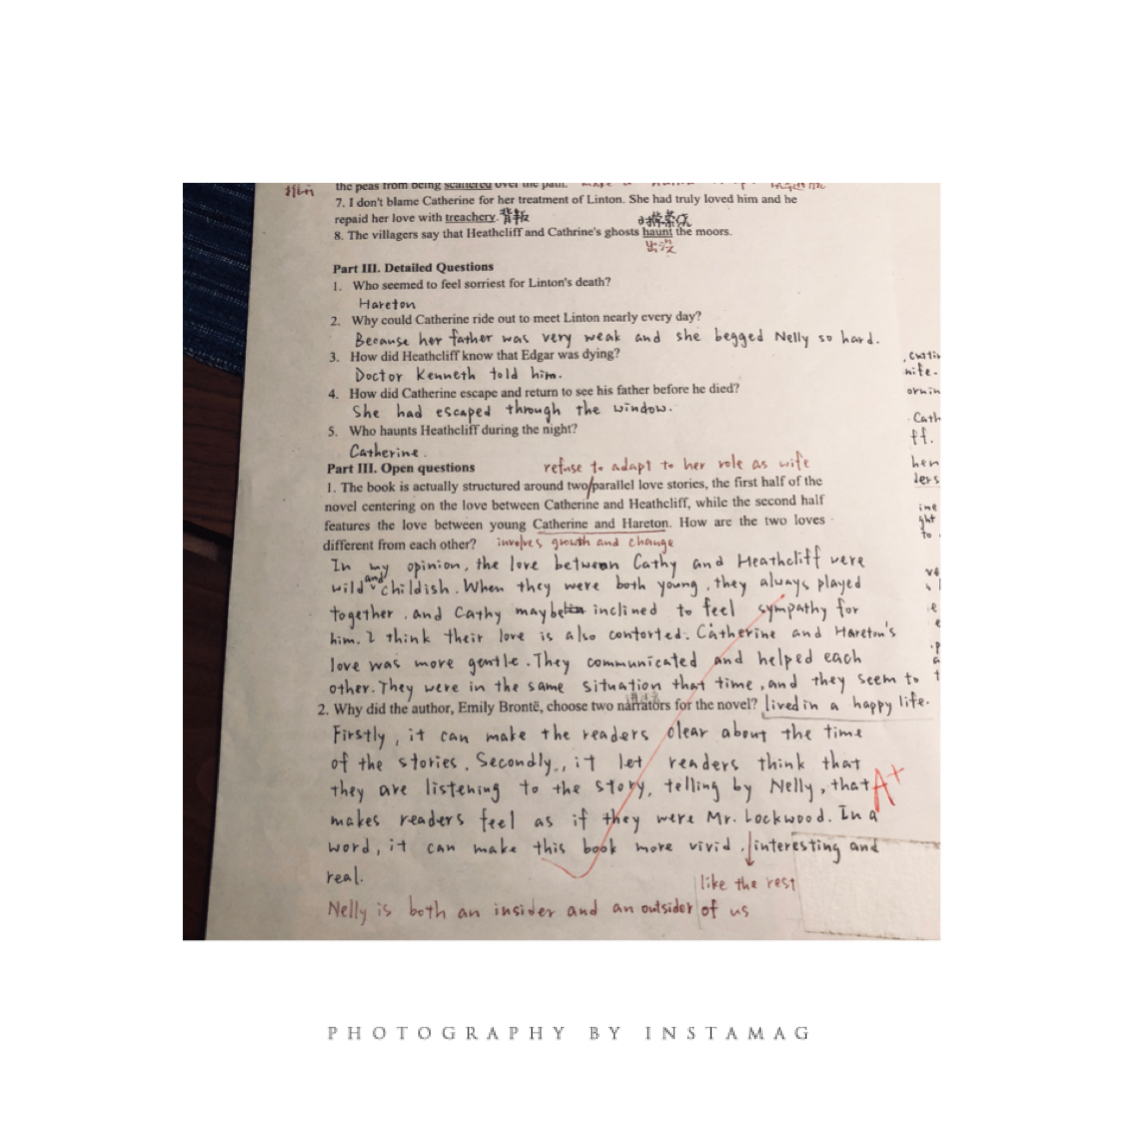 the peas from being scattered over the path.
7. I don't blame Catherine for her treatment of Linton. She had truly loved him and he
repaid her love with treachery. 背叛
8. The villagers say that Heathcliff and Cathrine's ghosts haunt the moors.
出没
Part III. Detailed Questions
1. Who seemed to feel sorriest for Linton's death?
Hareton
2. Why could Catherine ride out to meet Linton nearly every day?
Because her father was very weak and she begged Nelly so hard.
3. How did Heathcliff know that Edgar was dying?
Doctor Kenneth told him.
4. How did Catherine escape and return to see his father before he died?
She had escaped through the window.
5. Who haunts Heathcliff during the night?
Catherine.
Part III. Open questions refuse to adapt to her role as wife
1. The book is actually structured around two/parallel love stories, the first half of the
novel centering on the love between Catherine and Heathcliff, while the second half
features the love between young Catherine and Hareton. How are the two loves
different from each other? involves growth and change
In my opinion, the love between Cathy and Heathcliff were
wild and childish. When they were both young, they always played
together, and Cathy maybe inclined to feel sympathy for
him. I think their love is also contorted. Catherine and Hareton's
love was more gentle. They communicated and helped each
other. They were in the same situation that time, and they seem to
2. Why did the author, Emily Brontë, choose two narrators for the novel? lived in a happy life.
Firstly, it can make the readers clear about the time
of the stories. Secondly, it let readers think that
they are listening to the story, telling by Nelly, that
A+
makes readers feel as if they were Mr. Lockwood. In a
word, it can make this book more vivid, interesting and
real.
like the rest
Nelly is both an insider and an outsider of us
PHOTOGRAPHY BY INSTAMAG